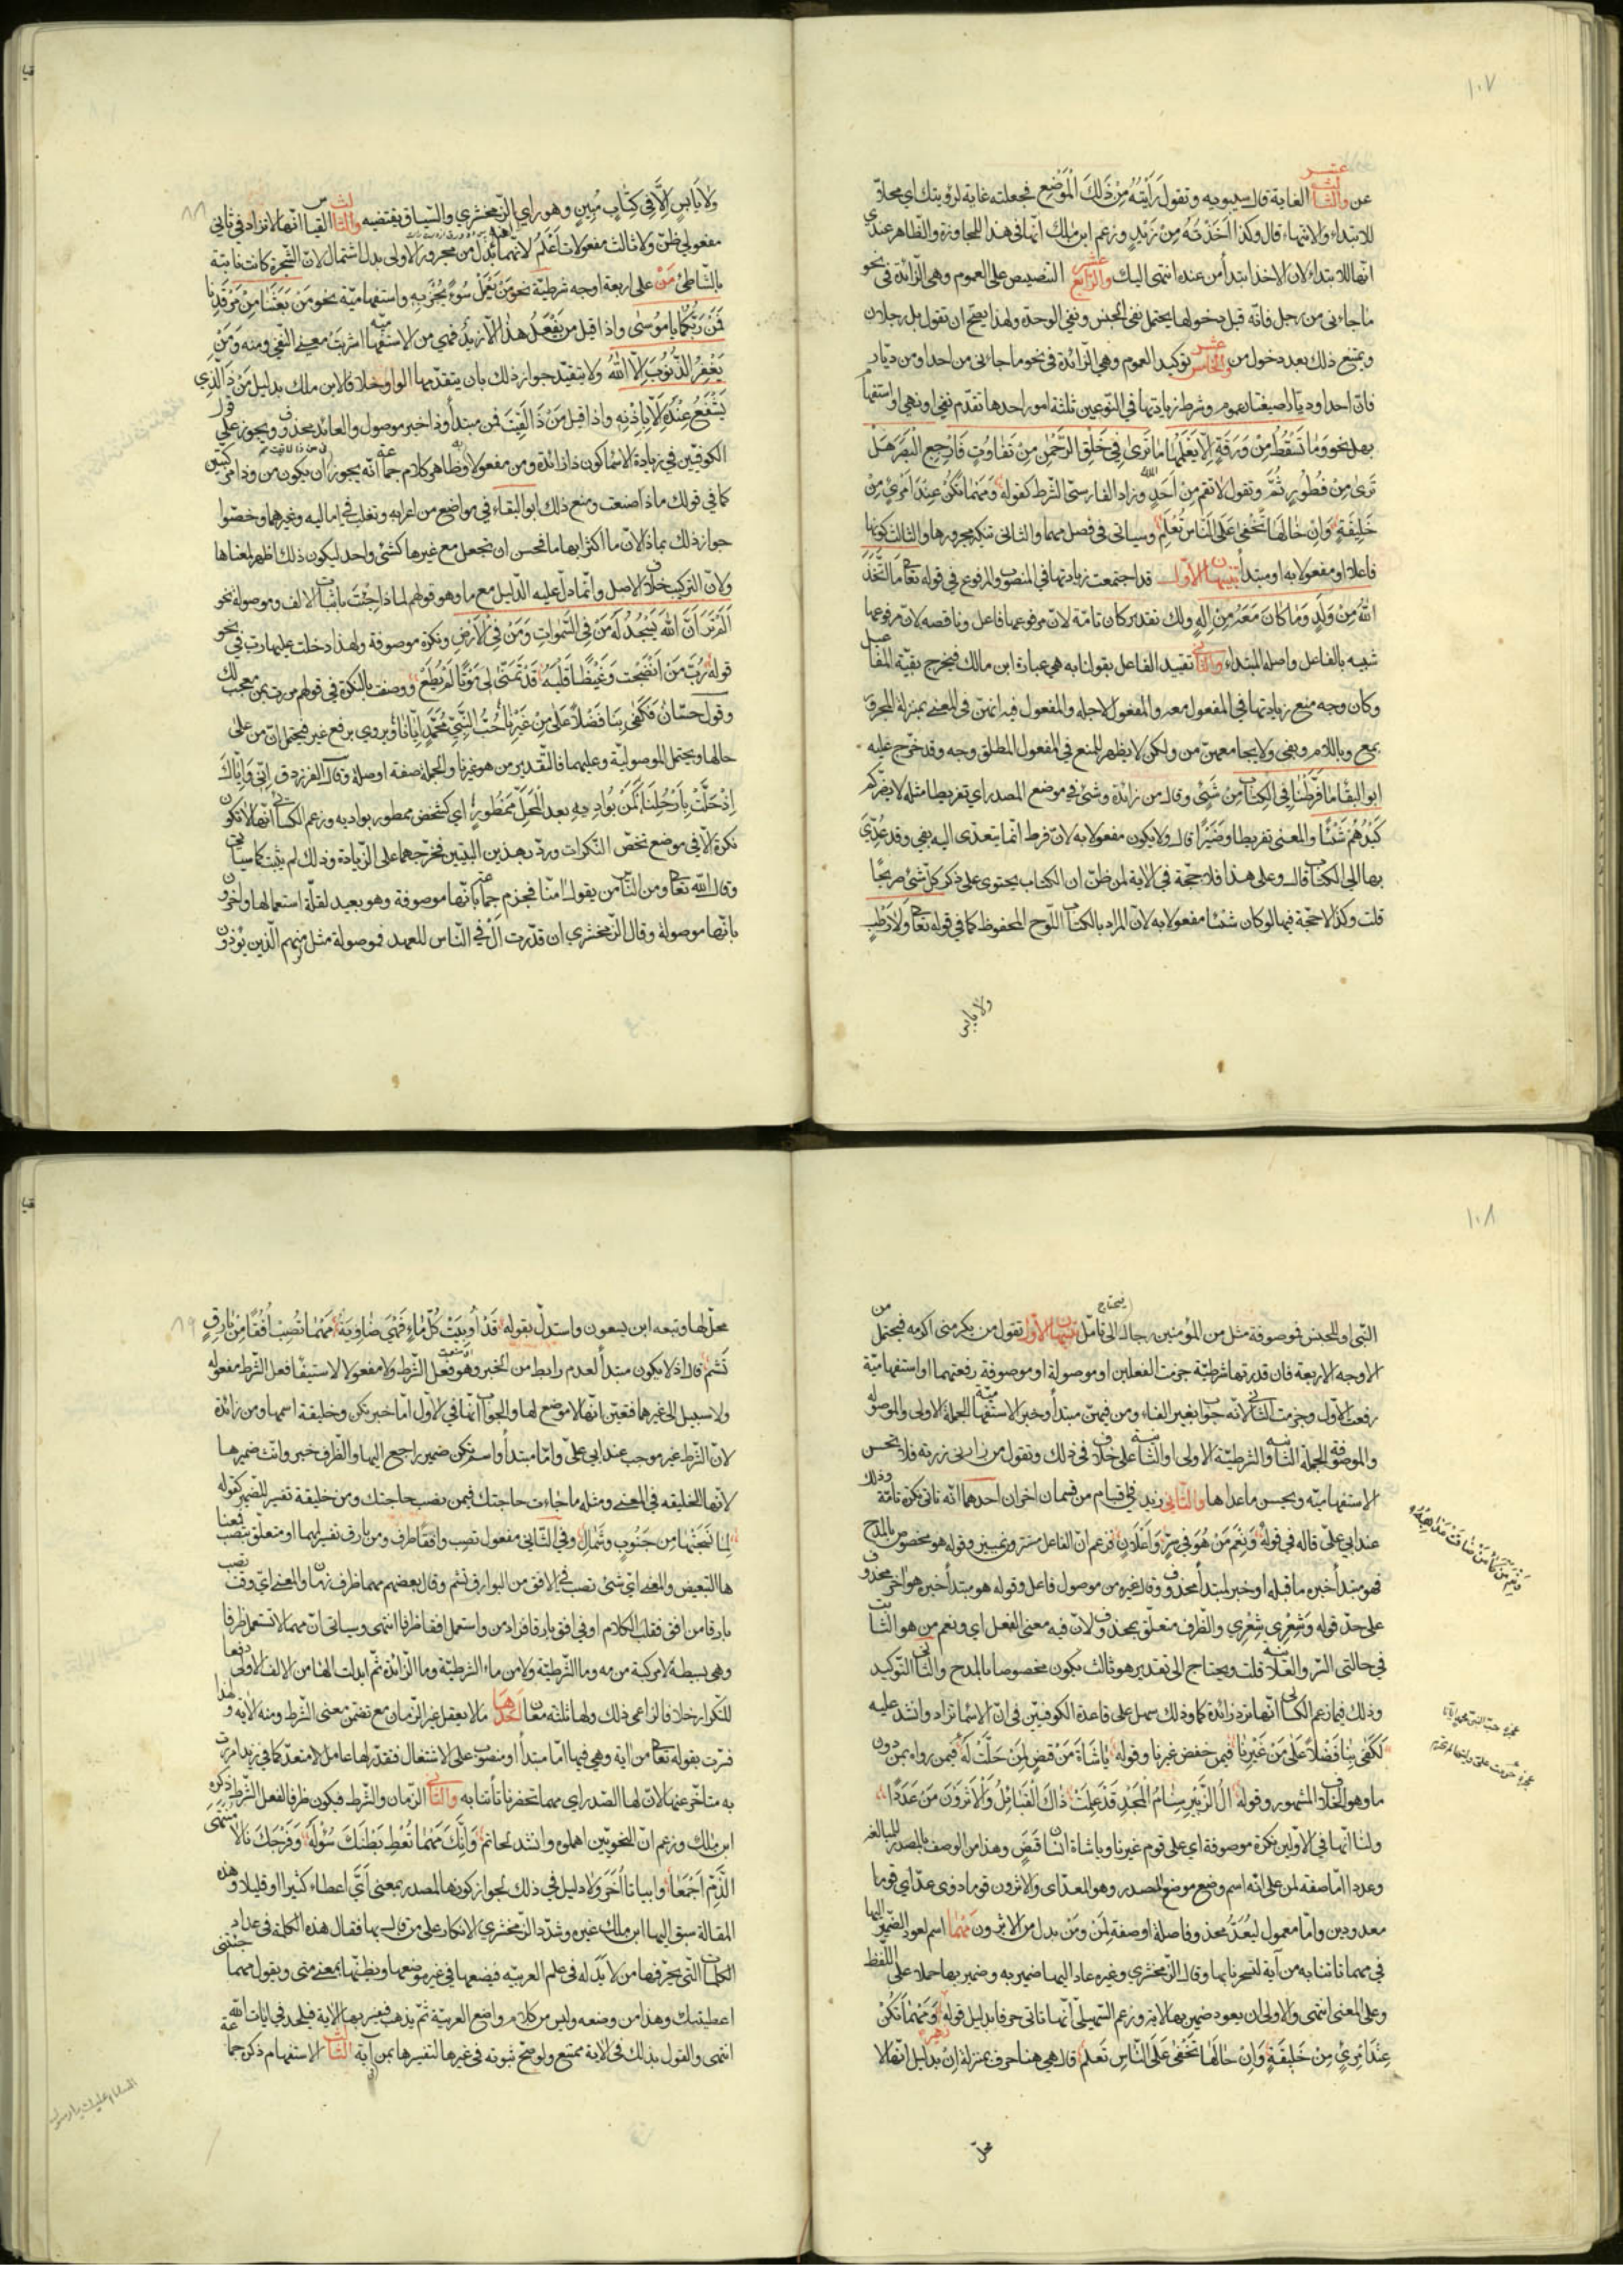 ١٠٧
عن والثالث عشر الغاية قال سيبويه وتقول رَأَيْتُهُ مِنْ ذَلِكَ الْمَوْضِعِ فجعلته غاية لرؤيتك اي محلا
للابتداء والانتهاء قال وكذا اَخَذْتُهُ مِنْ زَيْدٍ وزعم ابن مالك انها في هذا للمجاوزة والظاهر عندي
انها للابتداء لان الاخذ ابتدأ من عنده انتهى اليك والرابع عشر التنصيص على العموم وهي الزائدة في نحو
ما جاءني من رجل فانه قبل دخولها يحتمل نفي الجنس ونفي الوحدة ولهذا يصح ان تقول بل رجلان
ويمتنع ذلك بعد دخول من والخامس عشر توكيد العموم وهي الزائدة في نحو ما جاءني من احد او من ديار
فان احدا وديارا صيغتا عموم وشرط زيادتها في النوعين ثلثة امور احدها تقدم نفي او نهي او استفهام
بهل نحو وَمَا تَسْقُطُ مِنْ وَرَقَةٍ اِلَّا يَعْلَمُهَا مَا تَرَى فِي خَلْقِ الرَّحْمٰنِ مِنْ تَفَاوُتٍ فَارْجِعِ الْبَصَرَ هَلْ
تَرَى مِنْ فُطُورٍ وتقول لا تقم من اَحَدٍ وزاد الفارسي الشرط كقوله وَمَهْمَا تَكُنْ عِنْدَ امْرِئٍ مِنْ
خَلِيقَةٍ وَاِنْ خَالَهَا تَخْفَى عَلَى النَّاسِ تُعْلَمِ وسيأتي في فصل مهما والثاني تنكير مجرورها والثالث كونها
فاعلا او مفعولا به او مبتدأ تنبيهان الاول قد اجتمعت زيادتها في المنصوب والمرفوع في قوله تعالى مَا اتَّخَذَ
اللهُ مِنْ وَلَدٍ وَمَا كَانَ مَعَهُ مِنْ اِلٰهٍ ولك تقدير كان تامة لان مرفوعها فاعل وناقصة لان مرفوعها
شبيه بالفاعل واصله المبتداء والثاني تقييد الفاعل بقولنا به هي عبارة ابن مالك فيخرج بقية المفاعيل
وكان وجه منع زيادتها في المفعول معه والمفعول لاجله والمفعول فيه انهن في المعنى بمنزلة المجرور
بمع وباللام وبفي ولا يجامعهن من ولكن لا يظهر للمنع في المفعول المطلق وجه وقد خرج عليه
ابو البقاء مَا فَرَّطْنَا فِي الْكِتَابِ مِنْ شَيْءٍ وقال من زائدة وشئ في موضع المصدر اي تفريطا مثل لا يضركم
كَيْدُهُمْ شَيْئًا والمعنى تفريطا وضَيْرًا قال ولا يكون مفعولا به لان فرط انما يتعدى اليه بفي وقد عُدِّيَ
بها الى الكتاب قال وعلى هذا فلا حجة في الاية لمن ظن ان الكتاب يحتوي على ذكر كل شئ صريحًا
قلت وكذا لا حجة فيها لو كان شيئا مفعولا به لان المراد بالكتاب اللوح المحفوظ كما في قوله تعالى وَلَا رَطْبٍ
ولا يابس
وَلَا يَابِسٍ اِلَّا فِي كِتَابٍ مُبِينٍ وهو راي الزمخشري والسياق يقتضيه والثالث القياس انها لا تزاد في ثاني
مفعولي ظن ولا ثالث مفعولات اَعْلَمَ لانهما
بالشاطئ مَنْ على اربعة اوجه شرطية نحو مَنْ يَعْمَلْ سُوءً يُجْزَ بِهِ واستفهامية نحو مَنْ بَعَثَنَا مِنْ مَرْقَدِنَا
فَمَنْ رَبُّكُمَا يَا مُوسَى واذا قيل من يَفْعَلُ هذا اِلَّا زيدٌ فهي من الاستفهامية اشربت معنى النفي ومنه وَمَنْ
يَغْفِرُ الذُّنُوبَ اِلَّا اللهُ ولا يتقيد جواز ذلك بان يتقدمها الواو خلافا لابن ملك بدليل مَنْ ذَا الَّذِي
يَشْفَعُ عِنْدَهُ اِلَّا بِاِذْنِهِ واذا قيل مَنْ ذَا لَقِيتَ فمن مبتدأ وذا خبر موصول والعائد محذوف ويجوز على قول
الكوفيين في زيادة الاسماء كون ذا زائدة ومن مفعولا وظاهر كلام جماعة انه يجوز ان يكون من وذا مركبتين
كما في قولك ماذا صنعت ومنع ذلك ابو البقاء في مواضع من اعرابه وثعلب في اماليه وغيرهما وخصوا
جواز ذلك بماذا لان ما اكثر ابهاما فحسن ان تجعل مع غيرها كشئ واحد ليكون ذلك اظهر لمعناها
ولان التركيب خلاف الاصل وانما دل عليه الدليل مع ما وهو قولهم لماذا جِئْتَ باثبات الالف وموصولة نحو
اَلَمْ تَرَ اَنَّ اللهَ يَسْجُدُ لَهُ مَنْ فِي السَّمٰوَاتِ وَمَنْ فِي الْاَرْضِ ونكرة موصوفة ولهذا دخلت عليها رب في نحو
قوله رُبَّ مَنْ اَنْضَجْتُ غَيْظًا قَلْبَهُ قَدْ تَمَنَّى لِي مَوْتًا لَمْ يُطَعْ ووصفت بالنكرة في قولهم مررت بمن معجب لك
وقول حسّان فَكَفَى بِنَا فَضْلًا عَلَى مِنْ غَيْرِنَا حُبُّ النَّبِيِّ مُحَمَّدٍ اِيَّانَا ويروي برفع غير فيحتمل ان من على
حالها ويحتمل الموصولية وعليهما فالتقدير من هو غيرنا والجملة صفة او صلة وقال الفرزدق اِنِّي وَاِيَّاكَ
اِذْ حَلَّتْ بِاَرْحُلِنَا كَمَنْ بِوَادِيهِ بعد الْمَحْلِ مَمْطُورٌ اي كشخص ممطور بواديه وزعم الكسائي انها لا تكون
نكرة الا في موضع تخص النكرات ورد بهذين البيتين فخرجهما على الزيادة وذلك لم يثبت كما سيأتي
وقال الله تعالى ومن الناس من يقول امنا فجزم جماعة بانها موصوفة وهو بعيد لقلة استعمالها واخرون
بانها موصولة وقال الزمخشري ان قدرت اَلْ في الناس للعهد فموصولة مثل ومنهم الذين يؤذون
١٠٨
النبي او للجنس فموصوفة مثل من المؤمنين رجال الى تامل تنبيهان الاول تقول من يكرمني اكرمه فيحتمل
الاوجه الاربعة فان قدرتها شرطية جزمت الفعلين او موصولة او موصوفة رفعتهما او استفهامية
رفعت الاول وجزمت الثاني لانه جواب بغير الفاء ومن فيهن مبتدأ وخبر الاستفهامية الجملة الاولى والموصولة
والموصوفة الجملة الثانية والشرطية الاولى او الثانية على خلاف في ذلك وتقول من زارني زرته فلا يحسن
الاستفهامية ويحسن ما عداها والثاني زيد في اقسام من قسمان اخران احدهما انه تاتي نكرة تامة وذلك
عند ابي علي قاله في قوله وَنِعْمَ مَنْ هُوَ فِي سِرٍّ وَاِعْلَانٍ فزعم ان الفاعل مستتر ومن تمييز وقوله هو مخصوص بالمدح
فهو مبتدأ خبره ما قبله او خبر لمبتدأ محذوف وقال غيره من موصول فاعل وقوله هو مبتدأ خبره هو اخر محذوف
على حد قوله وَشِعْرِي شِعْرِي والظرف متعلق بمحذوف لان فيه معنى الفعل اي ونعم من هو الثابت
في حالتي السر والعلانية قلت ويحتاج الى تقدير هو ثالث يكون مخصوصا بالمدح والثاني التوكيد
وذلك فيما زعم الكسائي انها ترد زائدة كما وذلك سهل على قاعدة الكوفيين في ان الاسماء تزاد وانشد عليه
لَكَفَى بِنَا فَضْلًا عَلَى مَنْ غَيْرِنَا فيمن خفض غيرنا وقوله يَا شَاةَ مَنْ قَنَصٍ لِمَنْ حَلَّتْ لَهُ فيمن رواه بمن دون
ما وهو الخلاف المشهور وقوله آلُ الزُّبَيْرِ سِنَامُ الْمَجْدِ قَدْ عَلِمَتْ ذَاكَ الْقَبَائِلُ وَالْاَثْرَوْنَ مَنْ عَدَدًا
ولنا انها في الاولين نكرة موصوفة اي على قوم غيرنا ويا شاة انسان قنص وهذا من الوصف بالمصدر للمبالغة
وعددا اما صفة لمن على انه اسم وضع موضع المصدر وهو العد اي والاثرون قوما ذوي عد اي قوما
معدودين واما معمول ليُعَدُّ محذوفا صلة او صفة لِمَنْ ومَنْ بدل من الاثرون مَهْمَا اسم لعود الضمير اليها
في مهما تاتنا به من آية لتسحرنا بها وقال الزمخشري وغيره عاد اليها ضمير به وضمير بها حملا على اللفظ
وعلى المعنى انتهى والاولى ان يعود ضمير بها لاية وزعم السهيلي انها تاتي حرفا بدليل قوله وَمَهْمَا تَكُنْ
عِنْدَ امْرِئٍ مِنْ خَلِيقَةٍ وَاِنْ خَالَهَا تَخْفَى عَلَى النَّاسِ تُعْلَمِ قال هي هنا حرف بمنزلة اِنْ بدليل انها لا
محل
محل لها وتبعه ابن يسعون واستدل بقوله قَدْ اُوبِيَتْ كُلَّ مَاءٍ فَهْيَ ضَاوِيَةٌ مَهْمَا تُصِبْ اُفُقًا مِنْ بَارِقٍ
تَشِمِ قال اذ لا يكون مبتدأ لعدم رابط من الخبر وهو فعل الشرط ولا مفعولا لاستيفاء فعل الشرط مفعوله
ولا سبيل الى غيرهما فتعين انها لا موضع لها والجواب انها في الاول اما خبر تكن وخليقة اسمها ومن زائدة
لان الشرط غير موجب عند ابي علي واما مبتدأ واسم تكن ضمير راجع اليها والظرف خبر وانث ضميرها
لانها الخليقة في المعنى ومثله ما جاءت حاجتك فيمن نصب حاجتك ومن خليقة تفسير للضمير كقوله
لِمَا نَسَجَتْهَا مِنْ جَنُوبٍ وَشَمْاَلِ وفي الثاني مفعول تصب وافقا ظرف ومن بارق تفسير لمهما او متعلق بتصب فمعناها
التبعيض والمعنى اي شئ تصب في الافق من البوارق تشم وقال بعضهم مهما ظرف زمان والمعنى اي وقت تصب
بارقا من افق فقلب الكلام او في افق بارقا فزاد من واستعمل افقا ظرفا انتهى وسيأتي ان مهما لا تستعمل ظرفا
وهي بسيطة لا مركبة من مه وما الشرطية ولا من ما الشرطية وما الزائدة ثم ابدلت الهاء من الالف الاولى دفعا
للتكرار خلافا لزاعمي ذلك ولها ثلثة معان احدها ما لا يعقل غير الزمان مع تضمن معنى الشرط ومنه الاية ولهذا
فسرت بقوله تعالى من اية وهي فيها اما مبتدأ او منصوب على الاشتغال فيقدر لها عامل متعد كما في زيدا مررت
به متاخر عنها لان لها الصدر اي مهما تحضرنا تأتنا به والثاني الزمان والشرط فيكون ظرفا لفعل الشرط ذكره
ابن مالك وزعم ان النحويين اهملوه وانشد لحاتم وَاِنَّكَ مَهْمَا تُعْطِ بَطْنَكَ سُؤْلَهُ وَفَرْجَكَ نَالَا مُنْتَهَى
الذَّمِّ اَجْمَعَا وابياتا اُخَرَ ولا دليل في ذلك لجواز كونها للمصدر بمعنى اَيَّ اعطاء كثيرا او قليلا وهذه
المقالة سبق اليها ابن مالك غيره وشدد الزمخشري الانكار على من قال بها فقال هذه الكلمة في عداد
الكلمات التي يحرفها من لا يد له في علم العربية فيضعها في غير موضعها ويظنها بمعنى متى ويقول مهما جئتني
اعطيتك وهذا من وضعه وليس من كلام واضع العربية ثم يذهب فيفسر بها الاية فيلحد في ايات الله
انتهى والقول بذلك في الاية ممتنع ولو صح ثبوته في غيرها لتفسيرها بمن آية الثالث الاستفهام ذكره جماعة